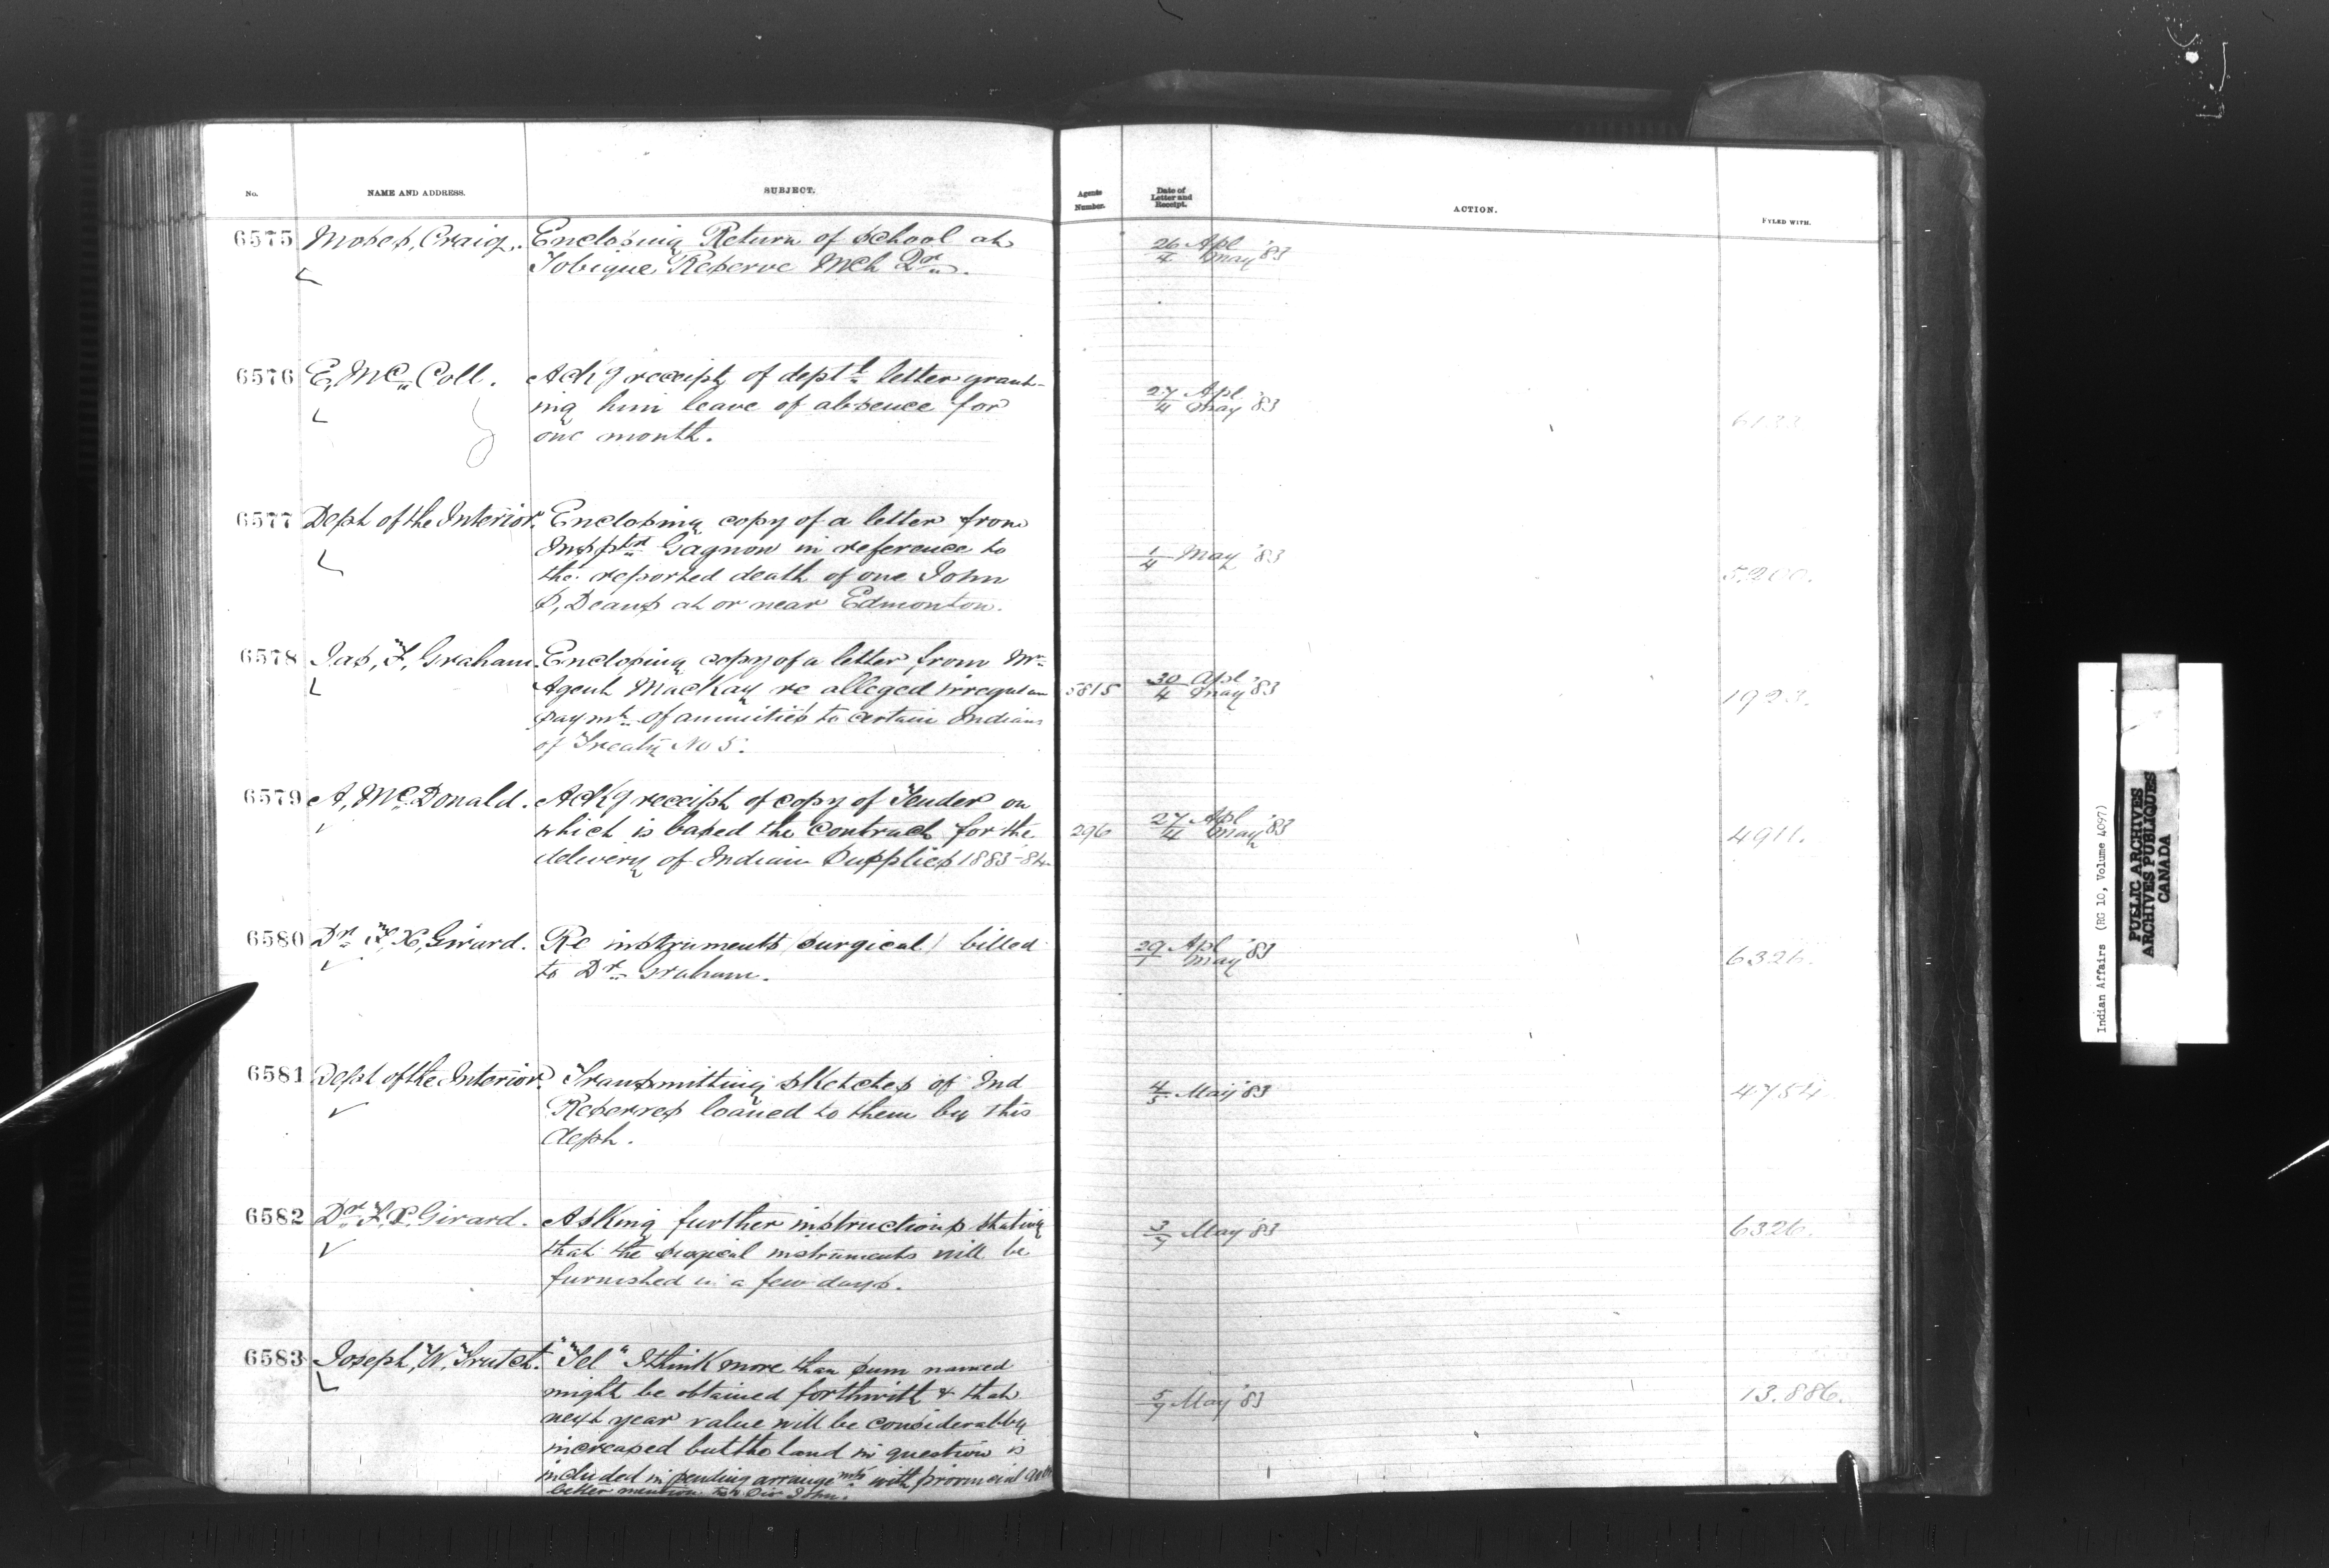 No. NAME AND ADDRESS. SUBJECT. Agents Number. Date of Letter and Receipt. ACTION. FYLED WITH.
6575 Moses, Craig. Enclosing Return of School at 26 Apl
Tobique Reserve Mch Qr. 4 May '83
6576 E, McColl. Ackg receipt of deptl letter grant- 27 Apl
ing him leave of absence for 4 May '83
one month.
6577 Dept of the Interior. Enclosing copy of a letter from
Insptr Gagnon in reference to 1/4 May '83
the reported death of one John 5,200.
S, Deans at or near Edmonton.
6578 Jas, F, Graham. Enclosing copy of a letter from Mr
Agent MacKay re alleged irregular 5815 30 Apl 4 May '83 1923.
paymt of annuities to certain Indians
of Treaty No 5.
6579 A, McDonald. Ackg receipt of copy of Tender on 27 Apl
which is based the contract for the 296 4 May '83 4911.
delivery of Indian Supplies 1883-84
6580 Dr F, X, Girard. Re instruments (surgical) billed 29 Apl
to Dr Graham. 1 May '83 6326.
6581 Dept of the Interior. Transmitting sketches of Ind 4/5 May '83 4754
Reserves loaned to them by this
dept.
6582 Dr F. X. Girard. Asking further instructions stating 3/7 May '83 6326.
that the surgical instruments will be
furnished in a few days.
6583 Joseph, W, Trutch. "Tel" I think more than sum named
might be obtained forthwith & that 5/7 May '83 13.886.
next year value will be considerably
increased but the land in question is
included in pending arrangemts with provincial Govt
better mention to Sir John.
Indian Affairs (RG 10, Volume 4097)
PUBLIC ARCHIVES
ARCHIVES PUBLIQUES
CANADA